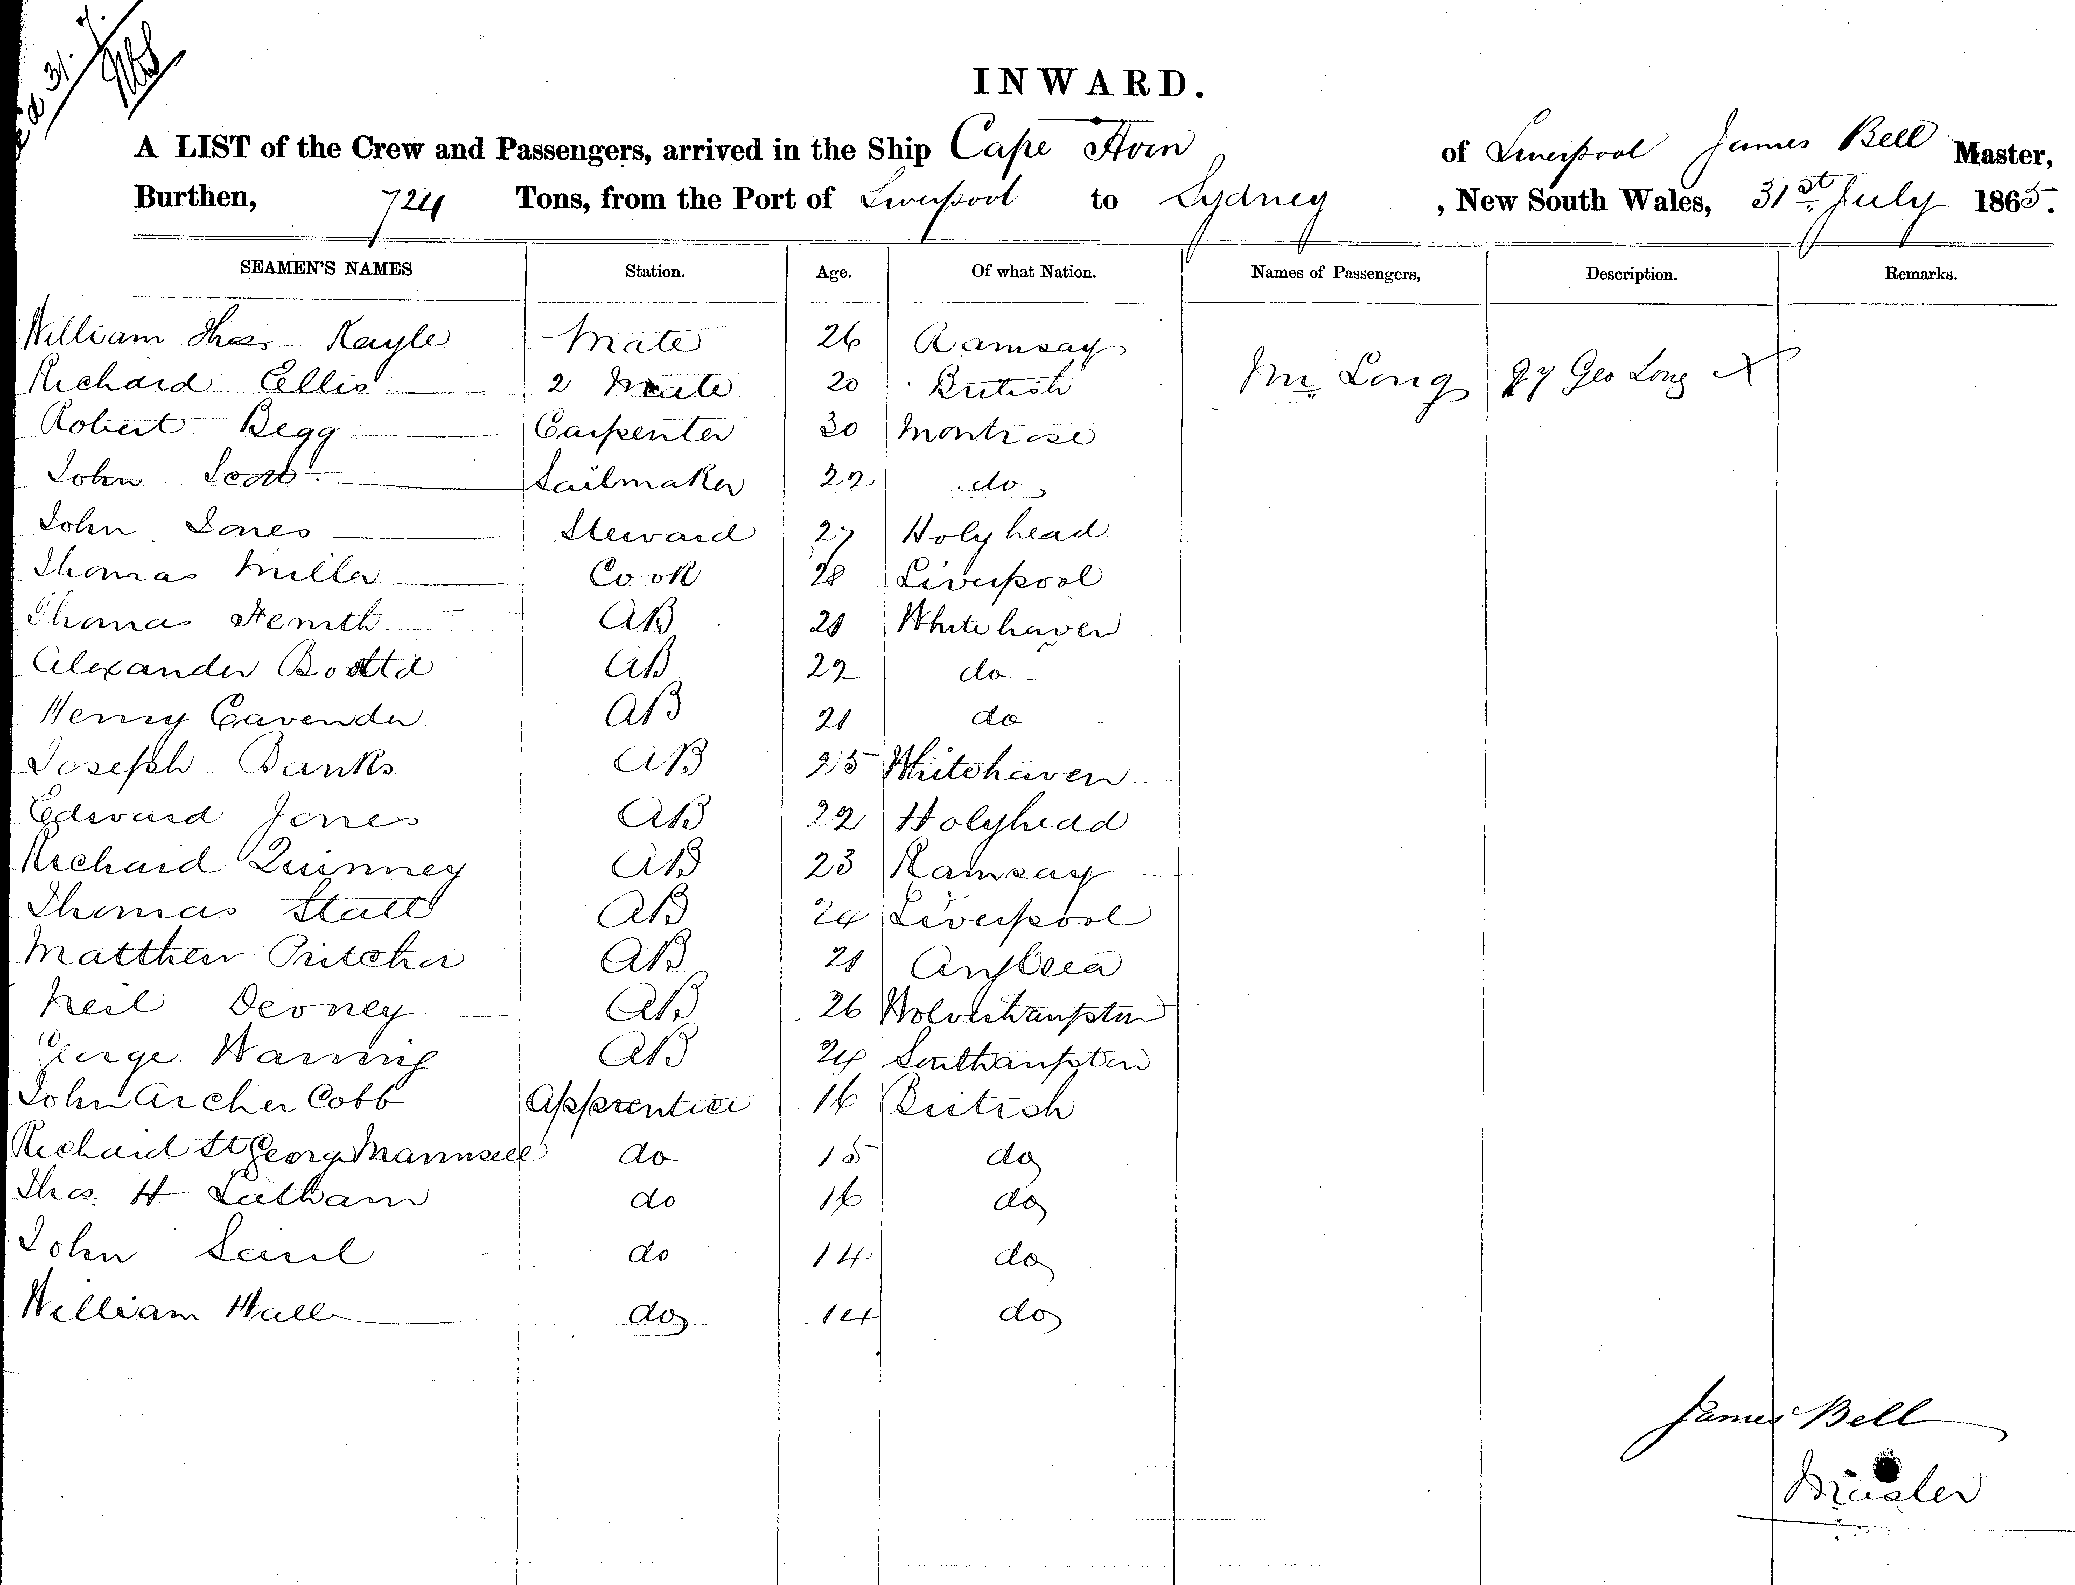 INWARD.
A LIST of the Crew and Passengers, arrived in the Ship Cape Horn of Liverpool James Bell Master,
Burthen, 724 Tons, from the Port of Liverpool to Sydney, New South Wales, 31st July 1865.
SEAMEN'S NAMES Station. Age. Of what Nation. Names of Passengers, Description. Remarks.
William Thos Kayle Mate 26 Ramsay
Mr Long Geo Long X
Richard Ellis 2 Mate 20 British
Robert Begg Carpenter 30 Montrose
John Scott Sailmaker 22 do
John Jones Steward 27 Holyhead
Thomas Miller Cook 28 Liverpool
Thomas AB 21 Whitehaven
Alexander AB 22 do
Henry Cavender AB 21 do
Joseph Banks AB 25 Whitehaven
Edward Jones AB 22 Holyhead
Richard Quinney AB 23 Ramsay
Thomas Statt AB 24 Liverpool
Matthew Pritcher AB 21 Anglsea
Neil Devney AB 26 Wolverhampton
George Warring AB 24 Southampton
John Archer Cobb Apprentice 16 British
Richard St George Maunsell do 15 do
Thos. H Latham do 16 do
John Saul do 14 do
William Hall do 14 do
James Bell
Master